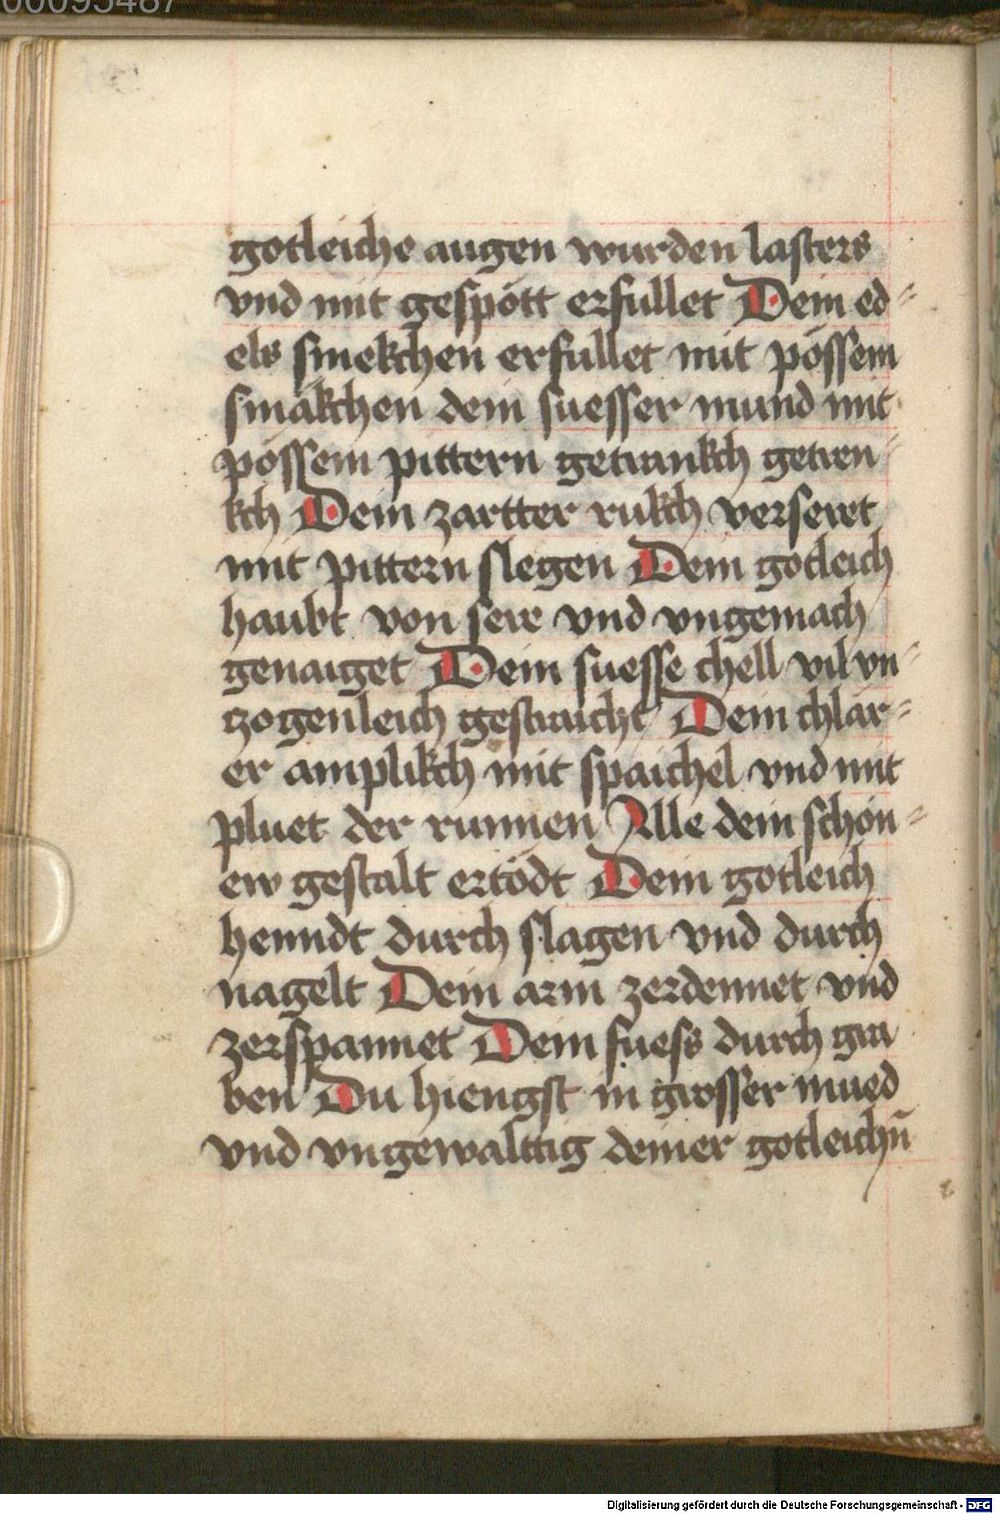 00095487
gotleiche augen wurden lasters
vnd mit gespött erfullet Dein ed⸗
els smekchen erfullet mit pössem
smäkchen dein suesser mund mit
pössem pittern getrankch getren⸗
kch Dein zartter rukch verseret
mit pittern slegen Dein gotleich
haubt von sere vnd vngemach
genaiget Dein suesse chell vil vn⸗
zogenleich gestraicht Dein chlar⸗
er amplikch mit spaichel vnd mit
pluet der runnen Alle dein schön⸗
ew gestalt ertödt Dein gotleich
henndt durch slagen vnd durch
nagelt Dein arm zerdennet vnd
zerspannet Dein fuess durch gra
ben Du hiengst in grosser mued
vnd vngewalttig deiner gotleichn̄
Digitalisierung gefördert durch die Deutsche Forschungsgemeinschaft - DFG